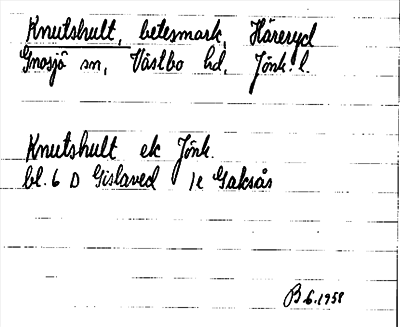 Knutshult, betesmark, Häreryd
Gnosjö sn, Västbo hd, Jönk. l.
Knutshult ek Jönk.
bl. 6 D Gislaved 1e Gaksås
B 6.1958